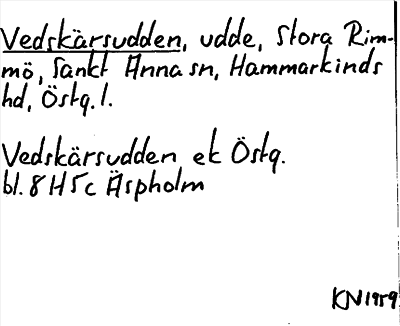 Vedskärsudden, udde, Stora Rim-
mö, Sankt Anna sn, Hammarkinds
hd, Östg. l.
Vedskärsudden ek Östg.
bl. 8 H 5 c Äspholm
KN 1959